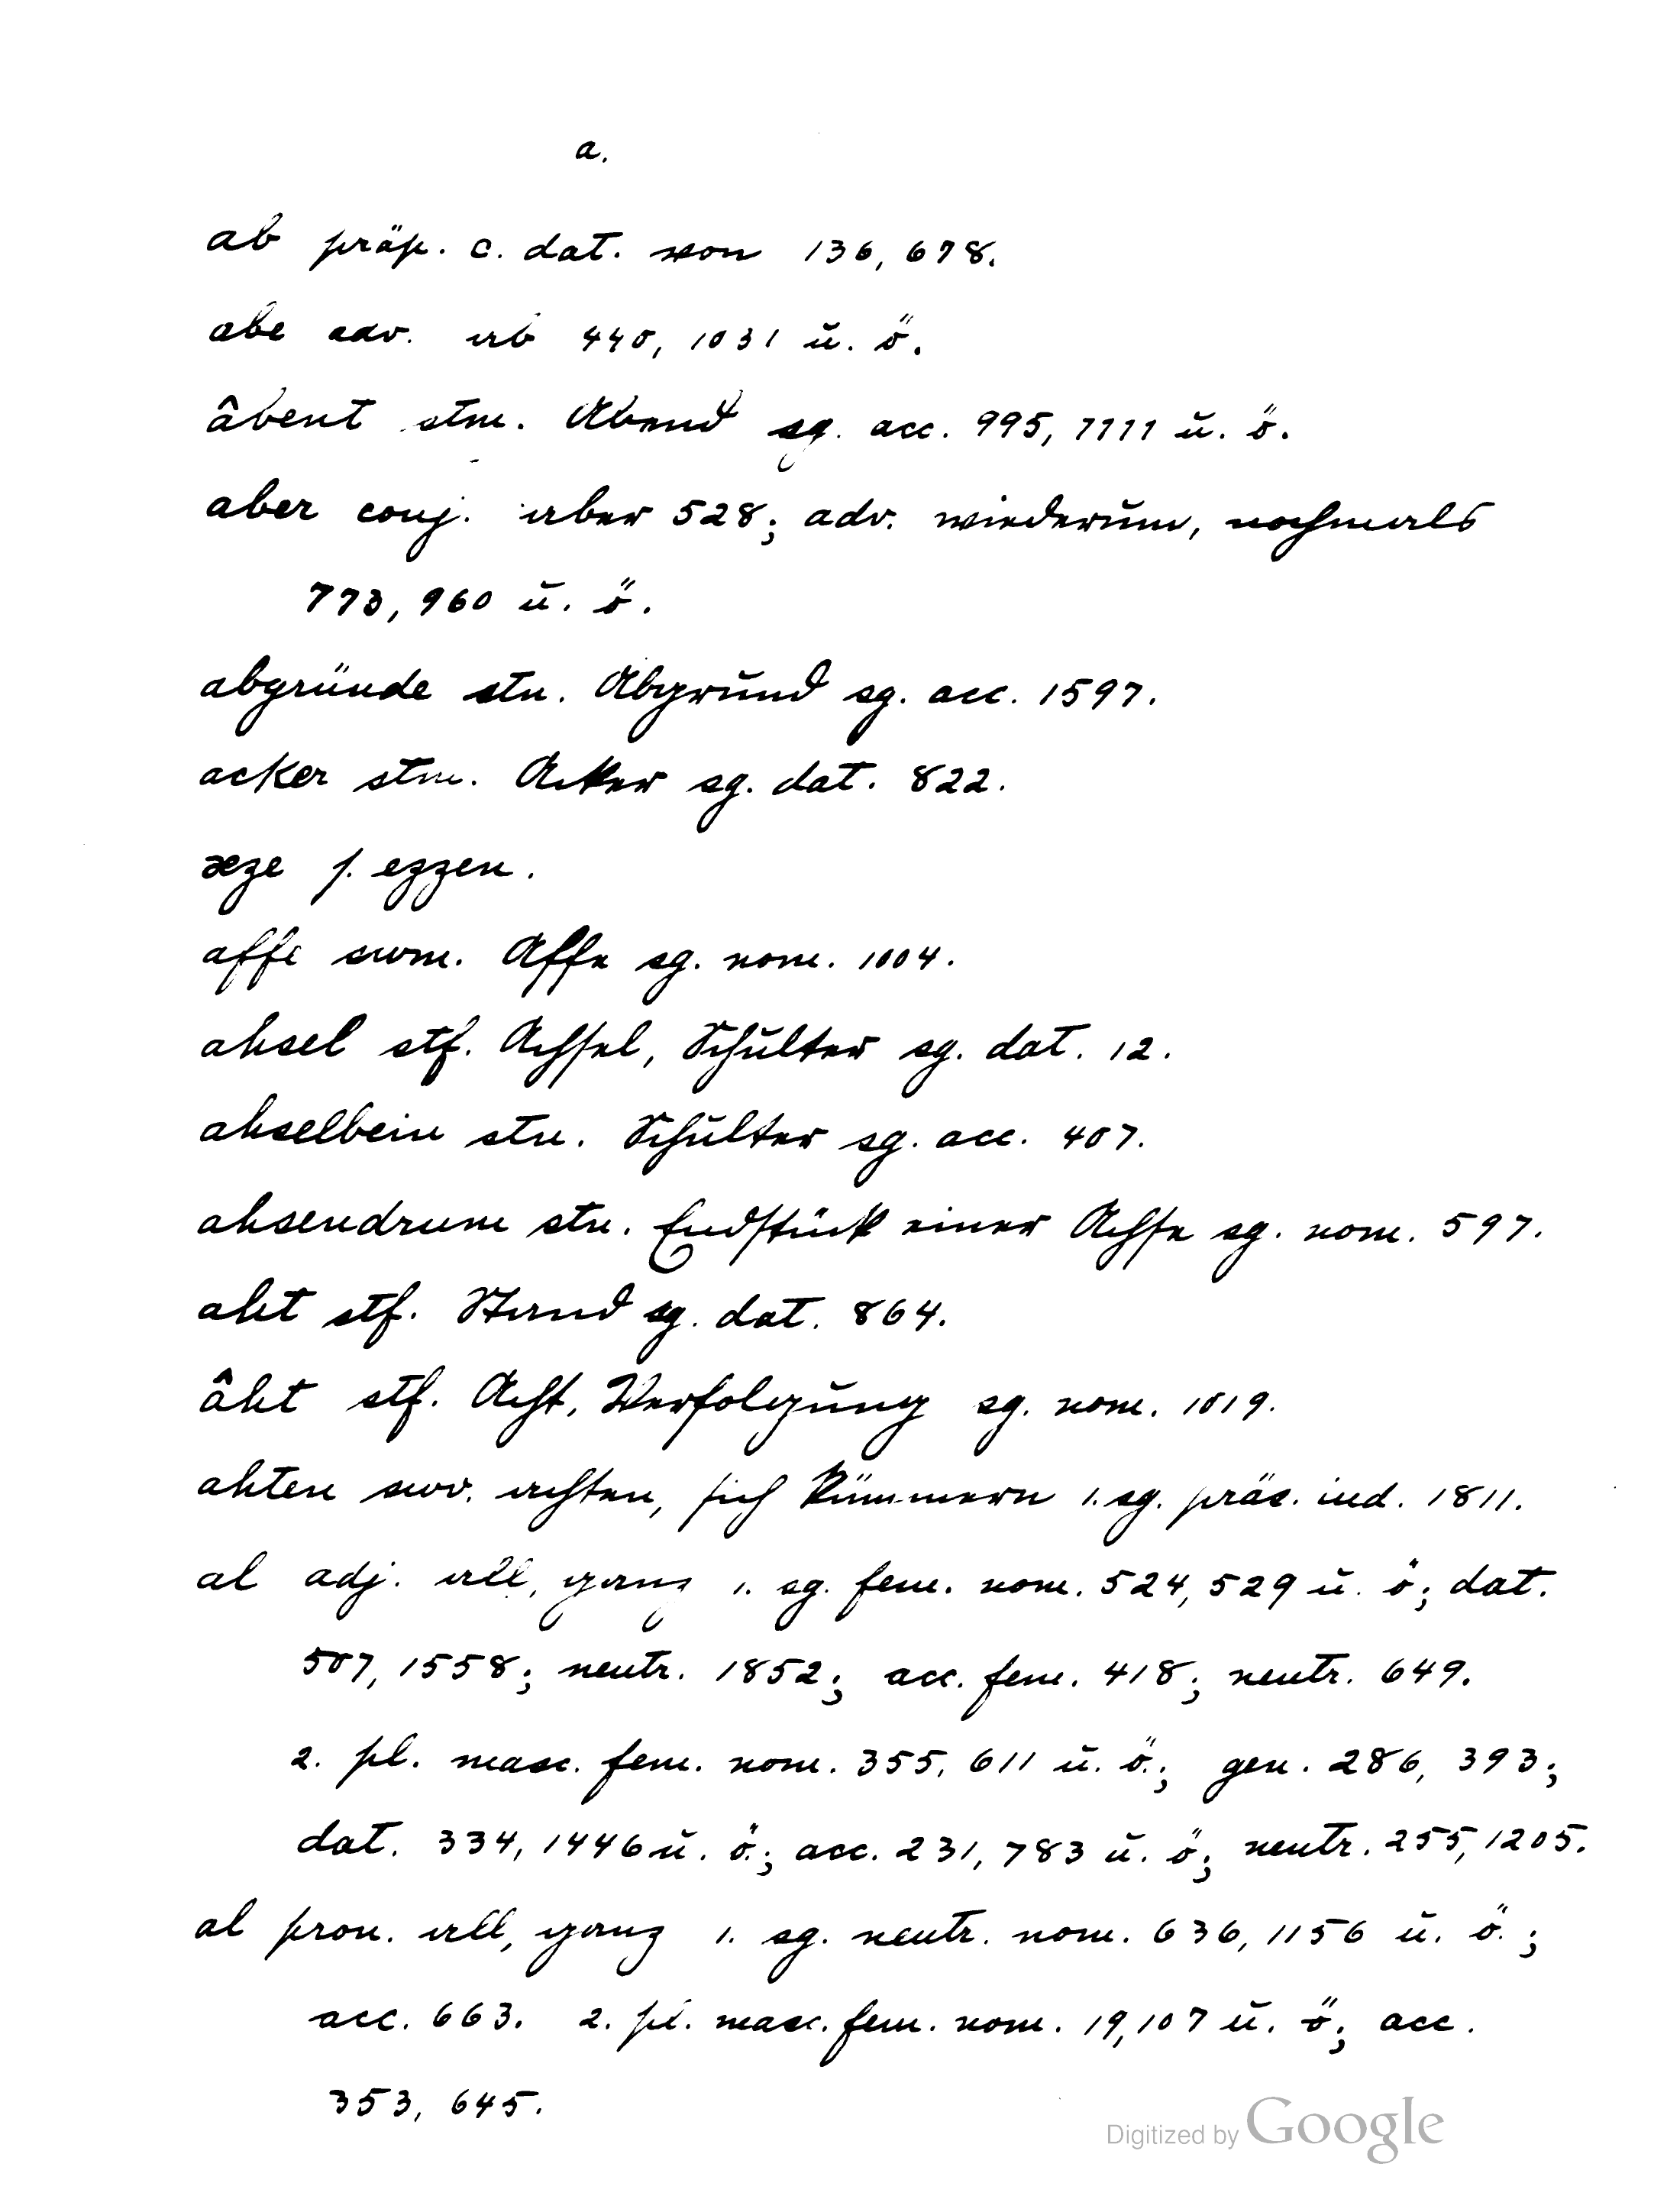 a.
ab präp. c. dat. von 136, 678.
abe adv. ab 440, 1031 u. ö.
âbent stm. Abend sg. acc. 995, 1111 u. ö.
aber conj. aber 528; adv. wiederum, nochmals
773, 960 u. ö.
abgründe stn. Abgrund sg. acc. 1597.
acker stm. Acker sg. dat. 822.
æze s. ezzen.
affe swm. Affe sg. nom. 1004.
ahsel stf. Achsel, Schulter sg. dat. 12.
ahselbein stn. Schulter sg. acc. 407.
ahsendrum stn. Endstück einer Achse sg. nom. 597.
aht stf. Stand sg. dat. 864.
âht stf. Acht, Verfolgung sg. nom. 1019.
ahten swv. achten, sich kümmern 1. sg. präs. ind. 1811.
al adj. all, ganz 1. sg. fem. nom. 524, 529 u. ö; dat.
507, 1558; neutr. 1852; acc. fem. 418; neutr. 649.
2. pl. masc. fem. nom. 355, 611 u. ö.; gen. 286, 393;
dat. 334, 1446 u. ö.; acc. 231, 783 u. ö; neutr. 255, 1205.
al pron. all, ganz 1. sg. neutr. nom. 636, 1156 u. ö.;
acc. 663. 2. pl. masc. fem. nom. 19, 107 u. ö; acc.
353, 645.
Digitized by Google